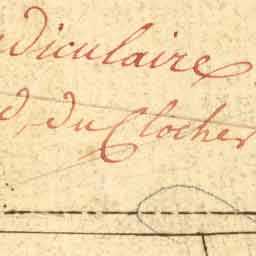 diculaire
d, du Clocher